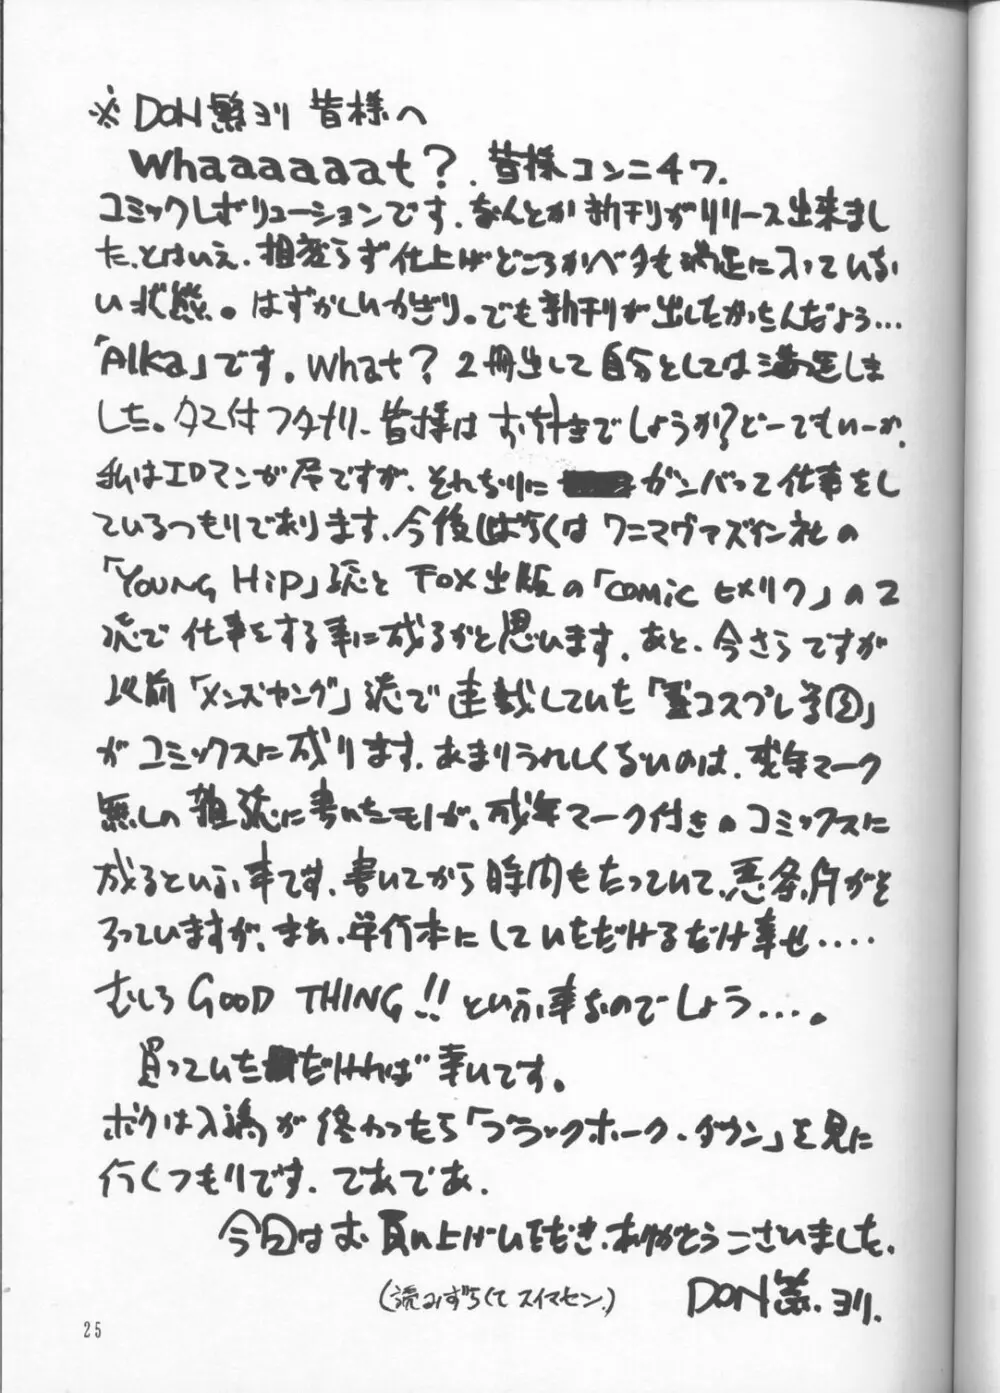 ※DON繁ヨリ 皆様へ
Whaaaaaat?. 皆様コンニチワ.
コミックレボリューションです. なんとか新刊がリリース出来まし
た. とはいえ. 相変らず仕上げどころかベタも満足に入っていな
い状態。はずかしいかぎり。でも新刊が出したかったんだよう…
「Alka」です。What? 2冊出して自分としては満足しま
した。タマ付フタナリ. 皆様はお好きでしょうか?どーでもいーか.
私はエロマンガ屋ですが. それなりに ガンバって仕事をし
ているつもりであります. 今後しばらくは ワニマガズイン社の
「YOUNG Hip」誌と FOX出版の「comic ヒメクリ」の2
誌で仕事をする事に成るかと思います. あと. 今さらですが
以前「メンズヤング」誌で連載していた「コスプレ学園」
がコミックスに成ります. あまりうれしくないのは. 成年マーク
無しの雑誌に書いたモノが、成年マーク付きのコミックスに
成るという事です. 書いてから時間もたっていて. 悪条件がそ
ろっていますが、まあ. 単行本にしていただけるだけ幸せ‥‥
むしろ GOOD THING!! という事なのでしょう…。
買っていただければ幸いです。
ボクは入稿が終わったら「ブラックホーク・ダウン」を見に
行くつもりです. であであ.
今回はお買い上げいただき. ありがとうございました.
(読みずらくて スイマセン.)
DON繁.ヨリ.
25